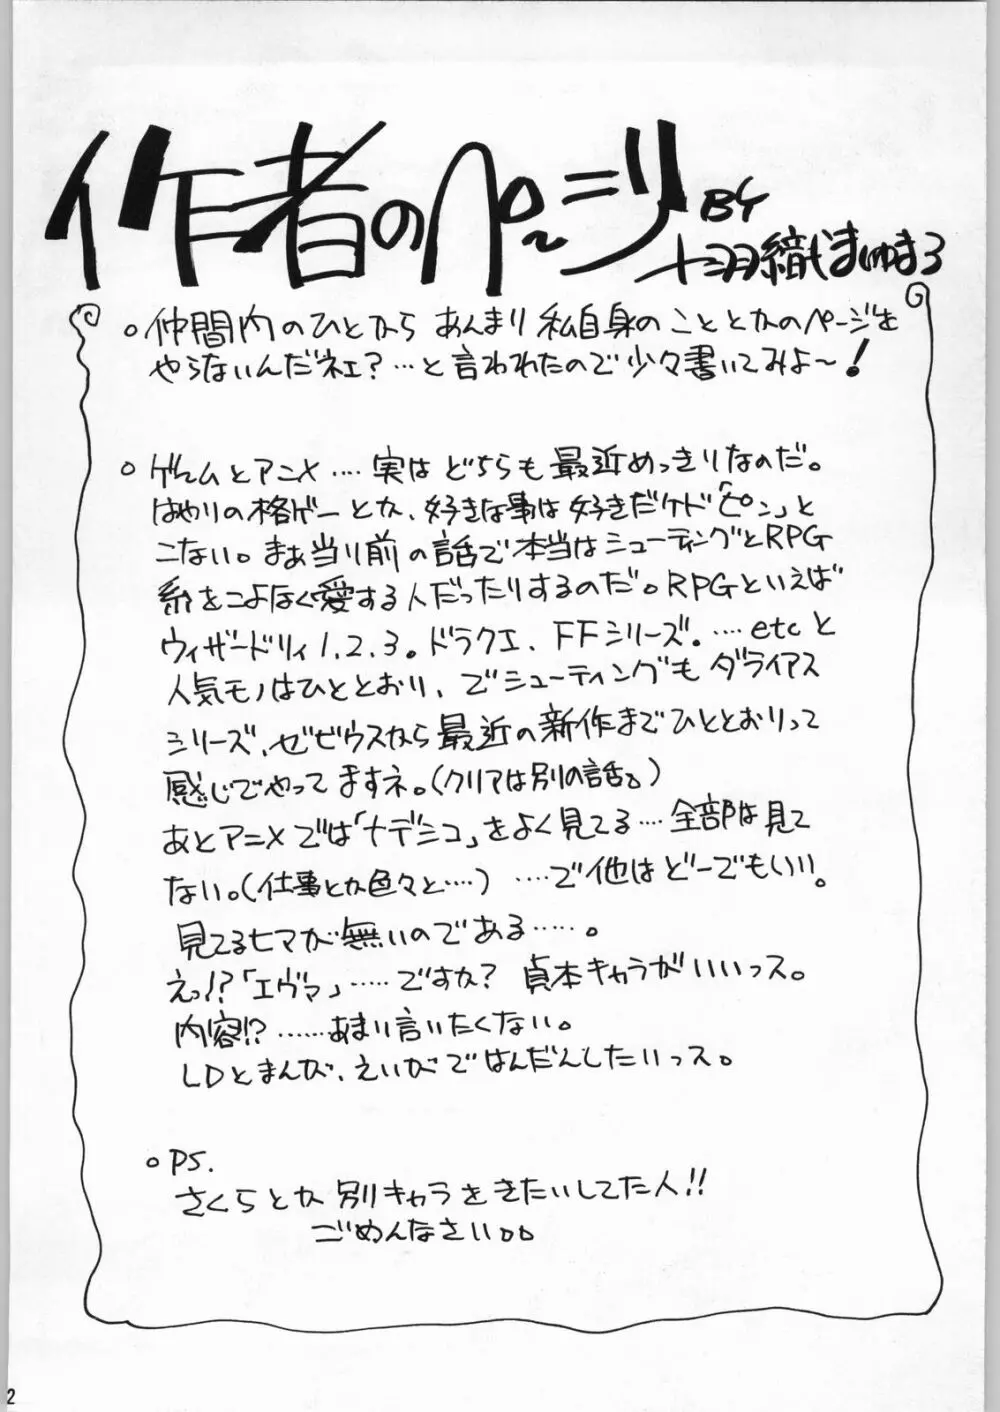 作者のぺ～ジ BY
十三月織まゆまろ
○仲間内のひとから あんまり 私自身の こととかのページを
やらないんだネェ?…と言われたので少々書いてみよ～!
○ゲームとアニメ‥‥実はどちらも最近めっきりなのだ。
はやりの格ゲーとか、好きな事は好きだケド「ピン」と
こない。まぁ当り前の話で本当はシューティングとRPG
系をこよなく愛する人だったりするのだ。RPGといえば
ウィザードリィ1.2.3。ドラクエ、FFシリーズ。‥‥etcと
人気モノはひととおり、でシューティングも ダライアス
シリーズ、ゼビウスから最近の新作までひととおりって
感じでやってますネ。(クリアは別の話。)
あとアニメでは「ナデシコ」をよく見てる‥‥全部は見て
ない。(仕事とか色々と‥‥) ‥‥で他はどーでもいい。
見てるヒマが無いのである‥‥‥。
えっ!?「エヴァ」‥‥‥ですか? 貞本キャラがいいっス。
内容!?‥‥‥あまり言いたくない。
LDとまんが、えいがではんだんしたいっス。
○PS.
さくらとか別キャラをきたいしてた人!!
ごめんなさい。。
2